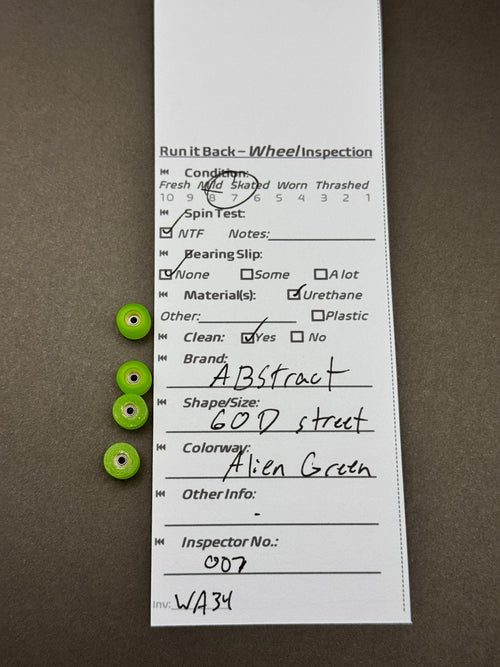 Run it Back – Wheel Inspection
Condition:
Fresh Mild Skated Worn Thrashed
10 9 8 7 6 5 4 3 2 1
Spin Test:
NTF Notes:
Bearing Slip:
None Some A lot
Material(s): Urethane
Other: Plastic
Clean: Yes No
Brand:
ABStract
Shape/Size:
60D street
Colorway:
Alien Green
Other Info:
-
Inspector No.:
007
Inv: WA34